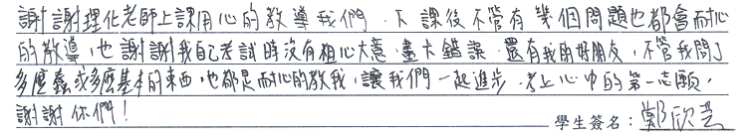 謝謝理化老師上課用心的教導我們，下課後不管有幾個問題也都會耐心
的教導，也謝謝我自己考試時沒有粗心大意、畫卡錯誤，還有我的好朋友，不管我問了
多麼蠢或多麼基本的東西，也都是耐心的教我，讓我們一起進步，考上心中的第一志願，
謝謝你們！
學生簽名：鄭欣芸